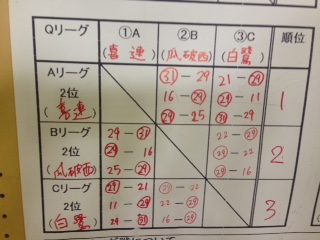 Qリーグ ①A (喜連) ②B (瓜破西) ③C (白鷺) 順位
Aリーグ 2位 (喜連) 31 - 29 21 - 29 1
16 - 29 29 - 11
29 - 25 31 - 29
Bリーグ 2位 (瓜破西) 29 - 31 22 - 29 2
29 - 16 29 - 22
25 - 29 29 - 16
Cリーグ 2位 (白鷺) 29 - 21 29 - 22 3
11 - 29 22 - 29
29 - 31 16 - 29